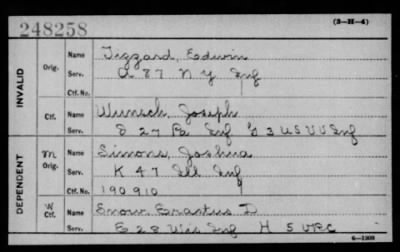 (3-H-4)
248258
INVALID
Orig.
Name Tizzard, Edwin
Serv. A 87 N Y Inf
Ctf. No.
Ctf.
Name Wunsch, Joseph
Serv. E 27 Pa Inf G 3 U S V V Inf
DEPENDENT
M
Orig.
Name Simons, Joshua
Serv. K 47 Ill Inf
Ctf. No. 190910
W
Ctf. No.
Name Snow Erastus D
Serv. E 28 Wis Inf H 5 VRC
6-1209